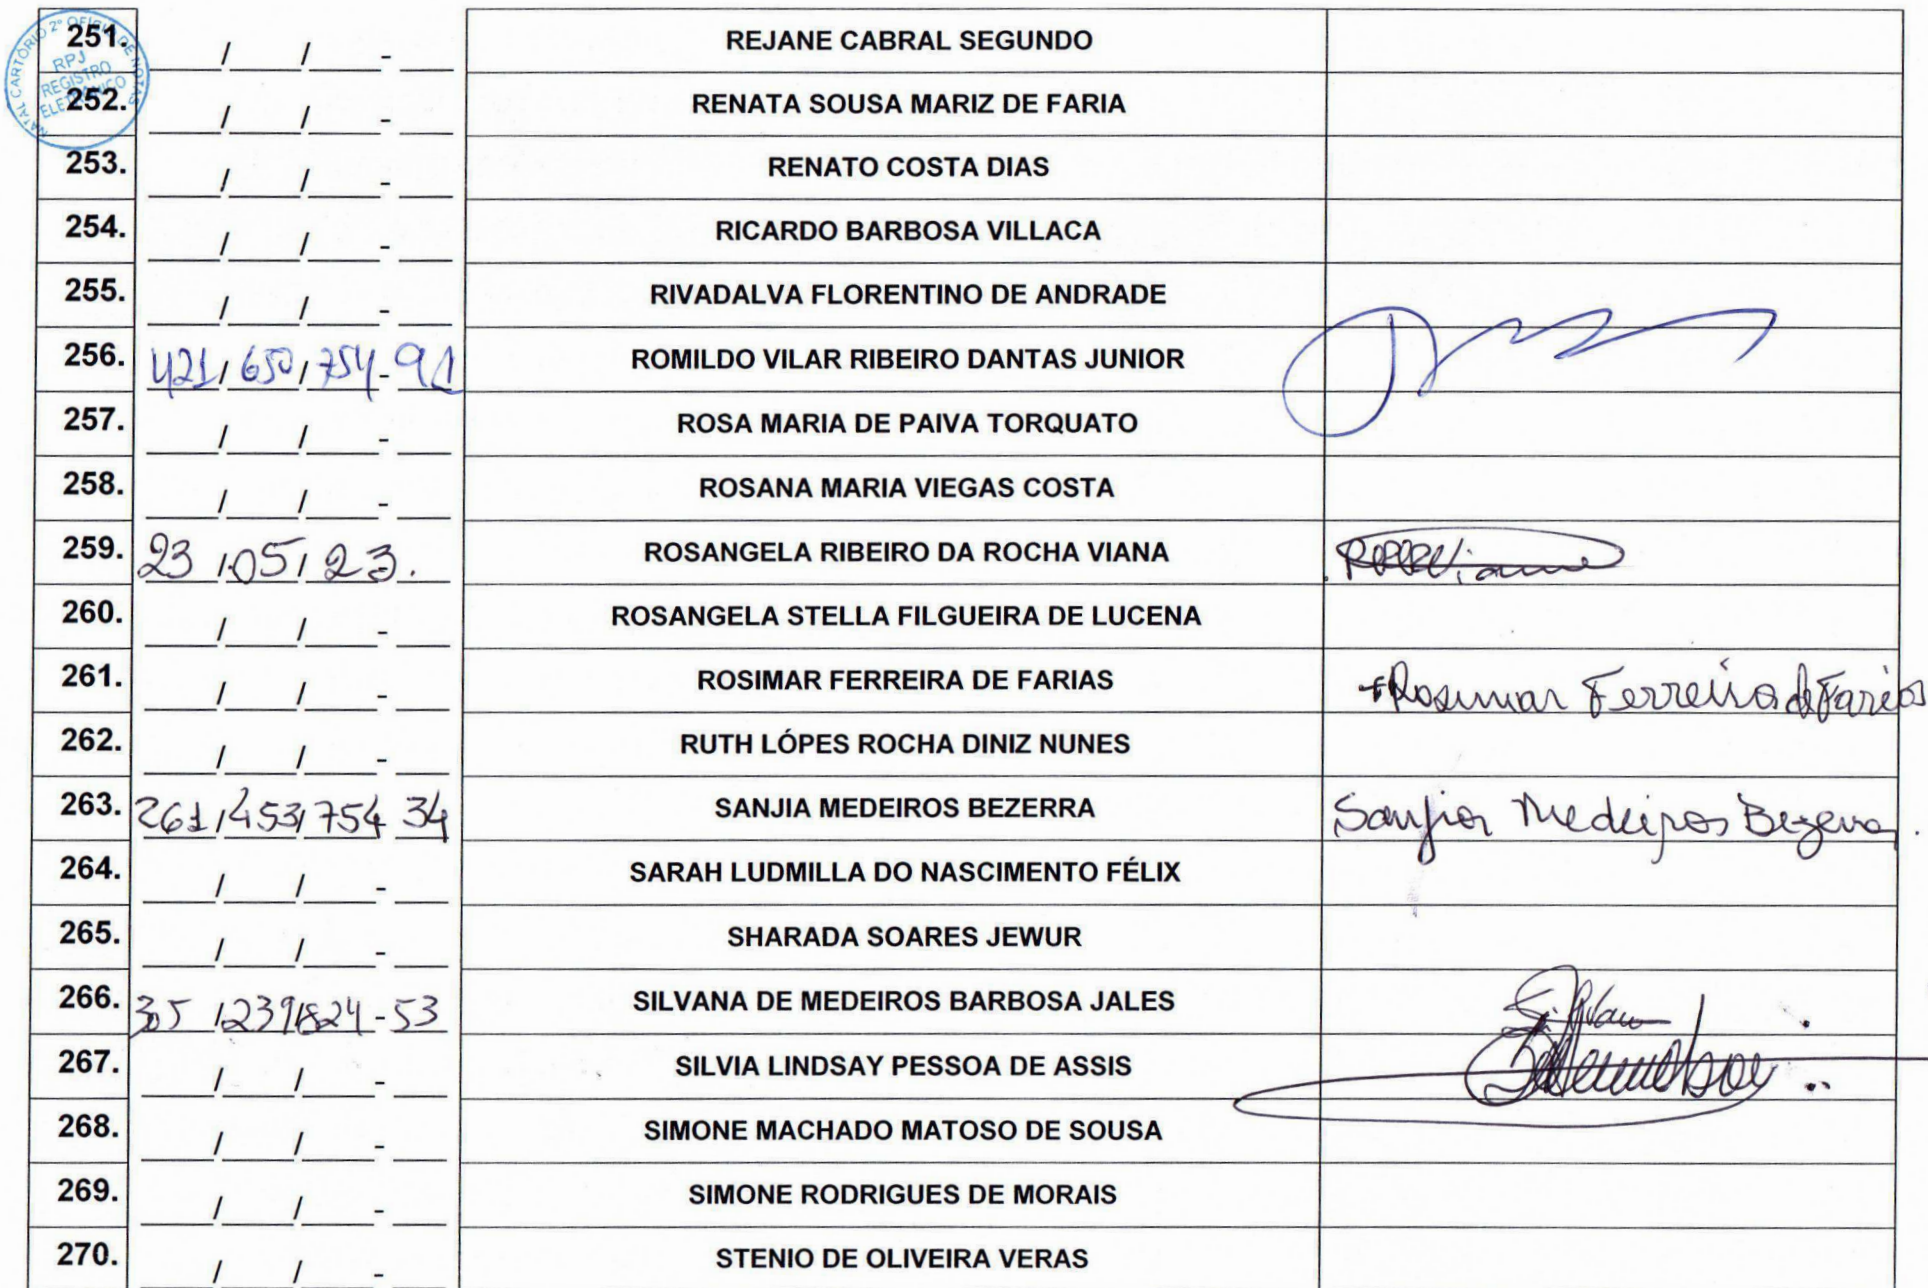 NATAL CARTÓRIO 2º OFÍCIO DE NOTAS
RPJ
REGISTRO
ELETRÔNICO
251. ___/___/___-__ REJANE CABRAL SEGUNDO
252. ___/___/___-__ RENATA SOUSA MARIZ DE FARIA
253. ___/___/___-__ RENATO COSTA DIAS
254. ___/___/___-__ RICARDO BARBOSA VILLACA
255. ___/___/___-__ RIVADALVA FLORENTINO DE ANDRADE
256. 421/650/754-91 ROMILDO VILAR RIBEIRO DANTAS JUNIOR
257. ___/___/___-__ ROSA MARIA DE PAIVA TORQUATO
258. ___/___/___-__ ROSANA MARIA VIEGAS COSTA
259. 23/05/23. ROSANGELA RIBEIRO DA ROCHA VIANA
260. ___/___/___-__ ROSANGELA STELLA FILGUEIRA DE LUCENA
261. ___/___/___-__ ROSIMAR FERREIRA DE FARIAS Rosimar Ferreira de Farias
262. ___/___/___-__ RUTH LÓPES ROCHA DINIZ NUNES
263. 261/453/754 34 SANJIA MEDEIROS BEZERRA Sanjia Medeiros Bezerra
264. ___/___/___-__ SARAH LUDMILLA DO NASCIMENTO FÉLIX
265. ___/___/___-__ SHARADA SOARES JEWUR
266. 305/239/824-53 SILVANA DE MEDEIROS BARBOSA JALES
267. ___/___/___-__ SILVIA LINDSAY PESSOA DE ASSIS
268. ___/___/___-__ SIMONE MACHADO MATOSO DE SOUSA
269. ___/___/___-__ SIMONE RODRIGUES DE MORAIS
270. ___/___/___-__ STENIO DE OLIVEIRA VERAS